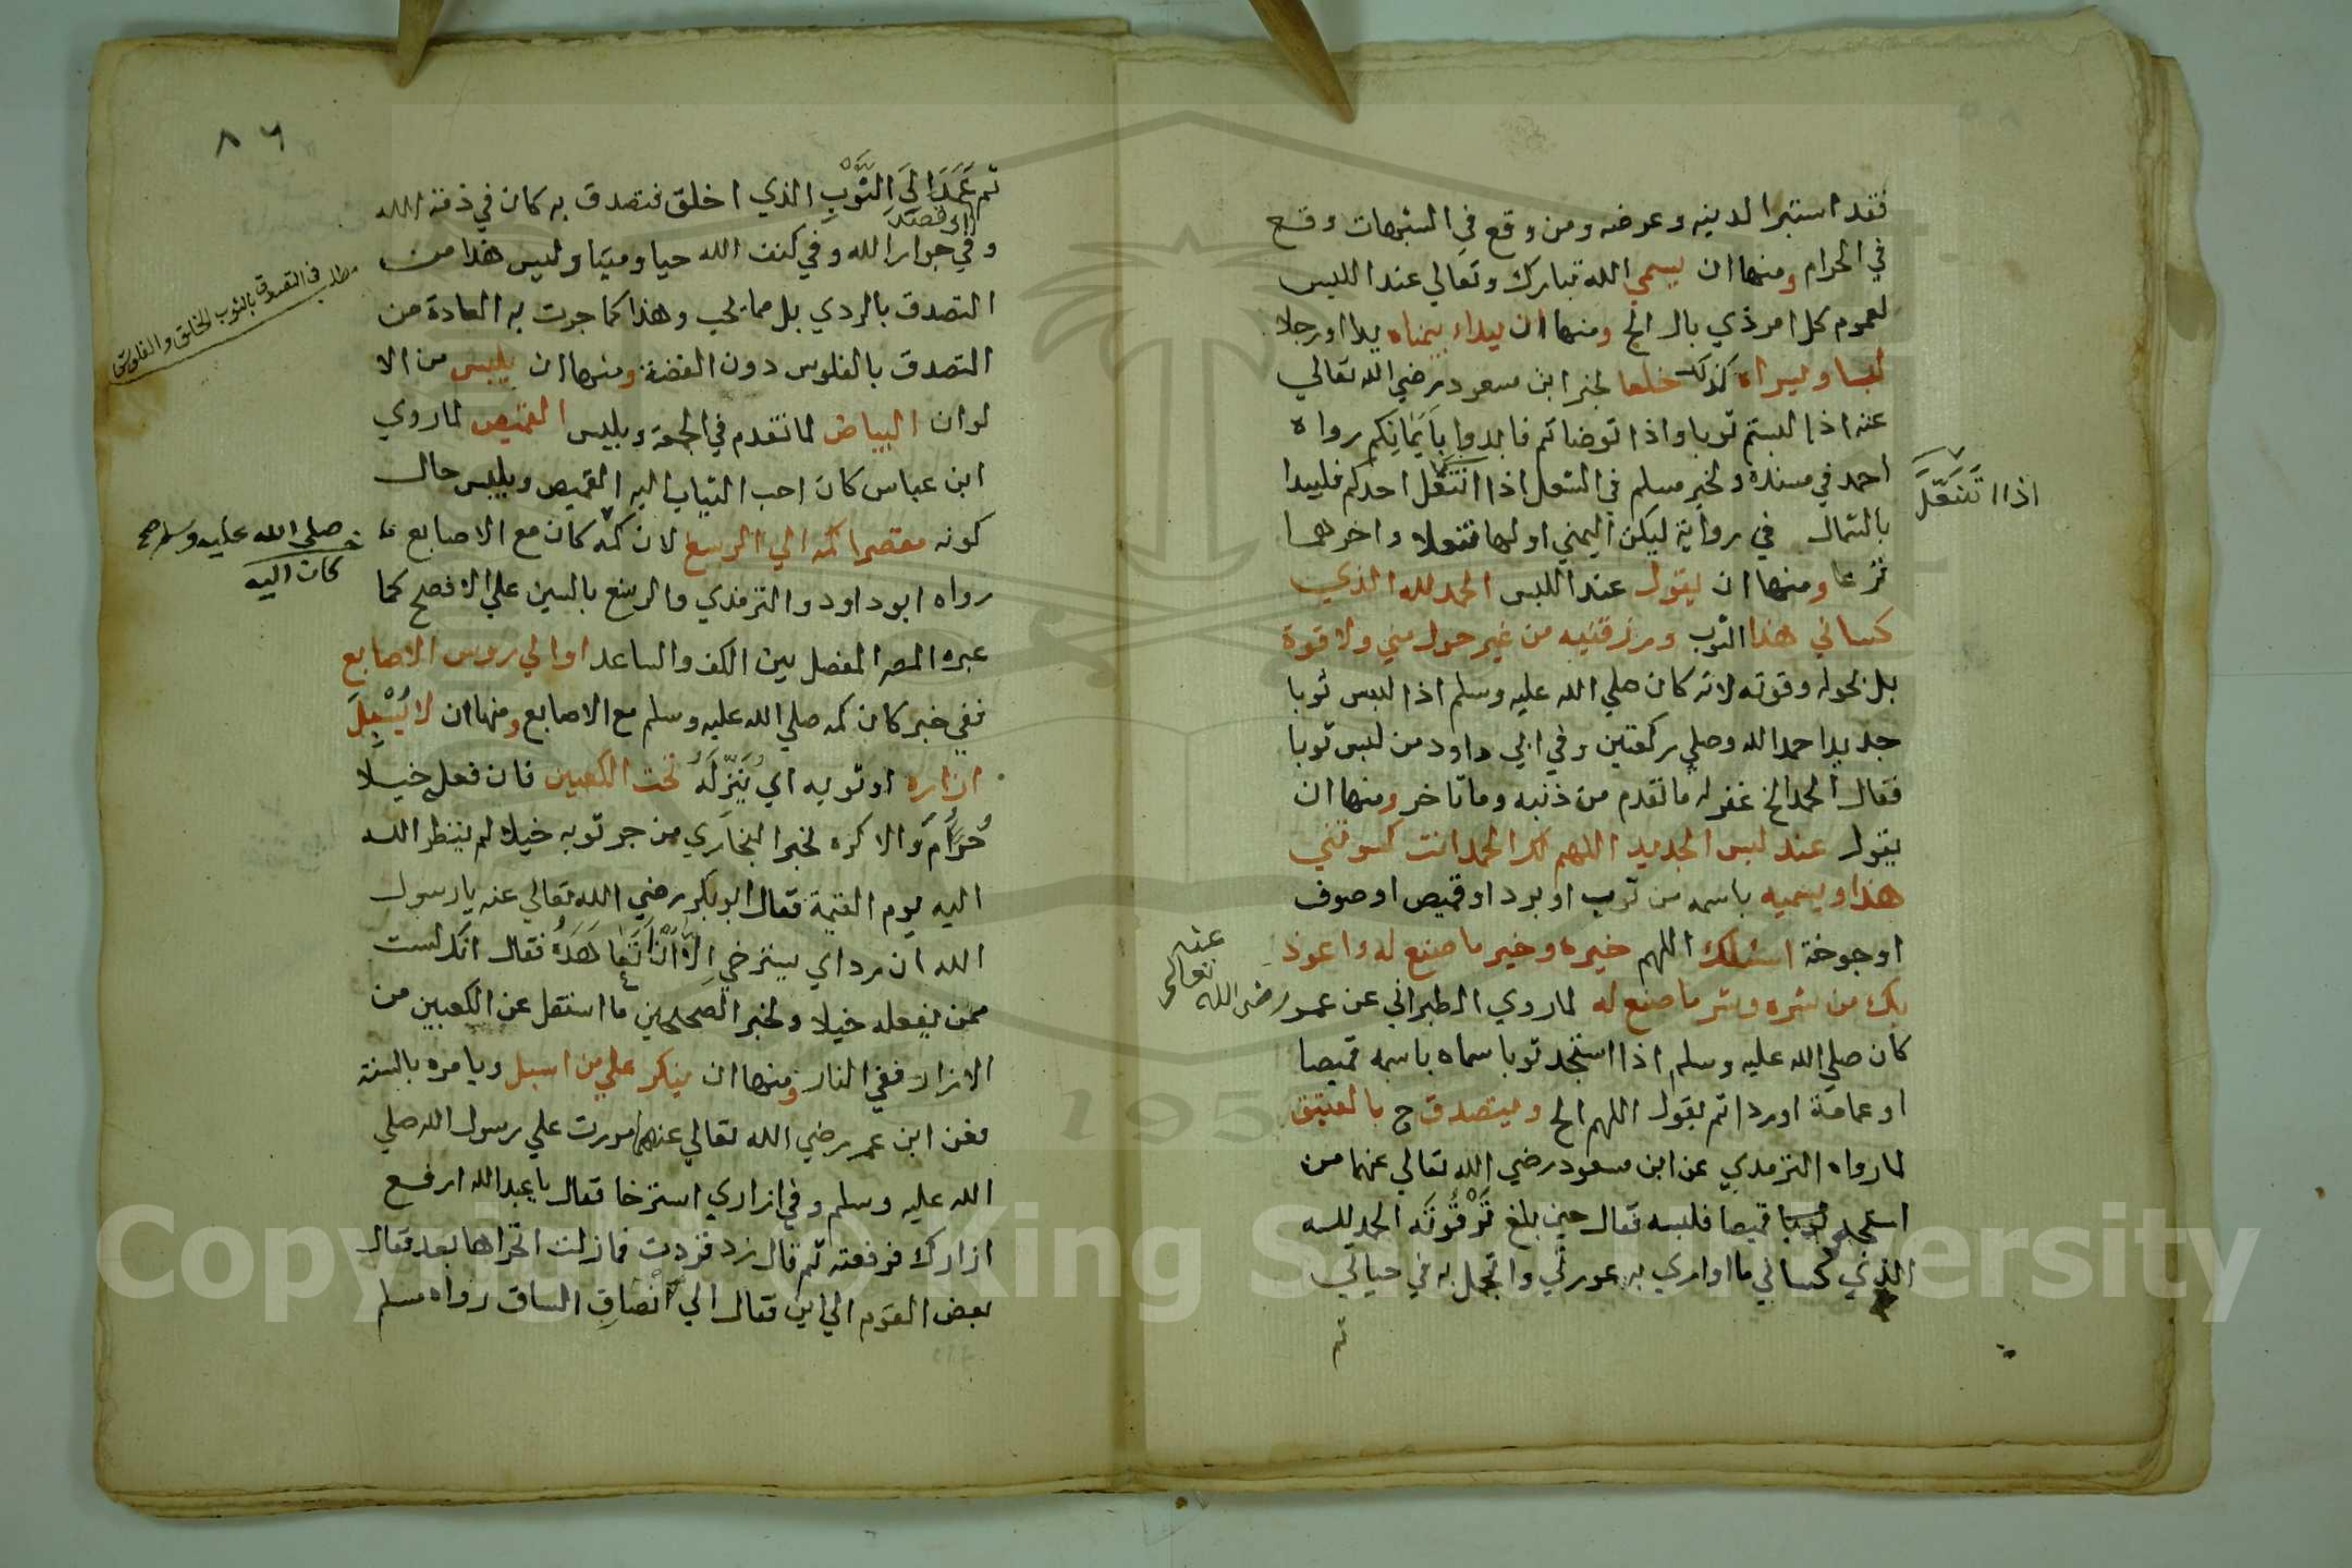 فقد استبرا لدينه وعرضه ومن وقع في الشبهات وقع
في الحرام ومنها ان يسمي الله تبارك وتعالي عند اللبس
لعموم كل امر ذي بال الخ ومنها ان يبداء بيمناه يدا او رجلا
لبسا وليسراه كذلك خلعا لخبر ابن مسعود رضي الله تعالي
عنه اذا لبستم ثوبا واذا توضاتم فابدوا بايمانكم رواه
احمد في مسنده ولخبر مسلم في النعل اذا انتعل احدكم فليبدا
اذا اتنعل
بالشمال في رواية ليكن اليمني اولها تنعلا واخرهما
نزعا ومنها ان يقول عند اللبس الحمد لله الذي
كساني هذا الثوب ورزقنيه من غير حول مني ولا قوة
بل بحوله وقوته لانه كان صلي الله عليه وسلم اذا لبس ثوبا
جديدا حمد الله وصلي ركعتين وفي ابي داود من لبس ثوبا
فقال الحمد الخ غفر له ما تقدم من ذنبه وما تاخر ومنها ان
يقول عند لبس الجديد اللهم لك الحمد انت كسوتني
هذا ويسميه باسمه من ثوب او برد او قميص او صوف
او جوخة اسئلك اللهم خيره وخير ما صنع له واعوذ
بك من شره وشر ما صنع له لما روي الطبراني عن عمر رضي الله تعالي عنه
كان صلي الله عليه وسلم اذا استجد ثوبا سماه باسمه قميصا
او عمامة او ردا ثم يقول اللهم الخ وليتصدق ح بالعتيق
لما رواه الترمذي عن ابن مسعود رضي الله تعالي عنهما من
استجد قميصا فلبسه فقال حين بلغ ترقوته الحمد لله
الذي كساني ما اواري به عورتي واتجمل به في حياتي
ثم
٨٦
ثم عمد الي الثوب الذي اخلق فتصدق به كان في ذمة الله
اي قصد
وفي جوار الله وفي كنف الله حيا وميتا وليس هذا من
التصدق بالردي بل مما يحب وهذا كما جرت به العادة من
مطلب في التصدق بالثوب الخلق والفلوس
التصدق بالفلوس دون الفضة ومنها ان يلبس من الا
لوان البياض لما تقدم في الجمعة ويلبس القميص لما روي
ابن عباس كان احب الثياب اليه القميص ويلبس حال
صلي الله عليه وسلم صح
كان اليه
كونه مقصرا كمه الي الرسغ لان كمه كان مع الاصابع
رواه ابو داود والترمذي والرسغ بالسين علي الافصح كما
عبره المص المفصل بين الكف والساعد او الي روس الاصابع
ففي خبر كان كمه صلي الله عليه وسلم مع الاصابع ومنها ان لا يسبل
ازاره او ثوبه اي ينزله تحت الكعبين فان فعل خيلا
حرام والا كره لخبر البخاري من جر ثوبه خيلا لم ينظر الله
اليه يوم القيمة فقال ابو بكر رضي الله تعالي عنه يا رسول
الله ان رداي يسترخي الا ان اتعاهده فقال انك لست
ممن يفعله خيلا ولخبر الصحيحين ما استقل عن الكعبين من
الازار ففي النار ومنها ان ينكر علي من اسبل ويامره بالسنة
فعن ابن عمر رضي الله تعالي عنهما مررت علي رسول الله صلي
الله عليه وسلم وفي ازاري استرخا فقال يا عبد الله ارفع
ازارك فرفعته ثم قال زد فزدت فما زلت اتحراها بعد فقال
بعض القوم الي اين فقال الي انصاف الساق رواه مسلم
Copyright © King Saud University
195